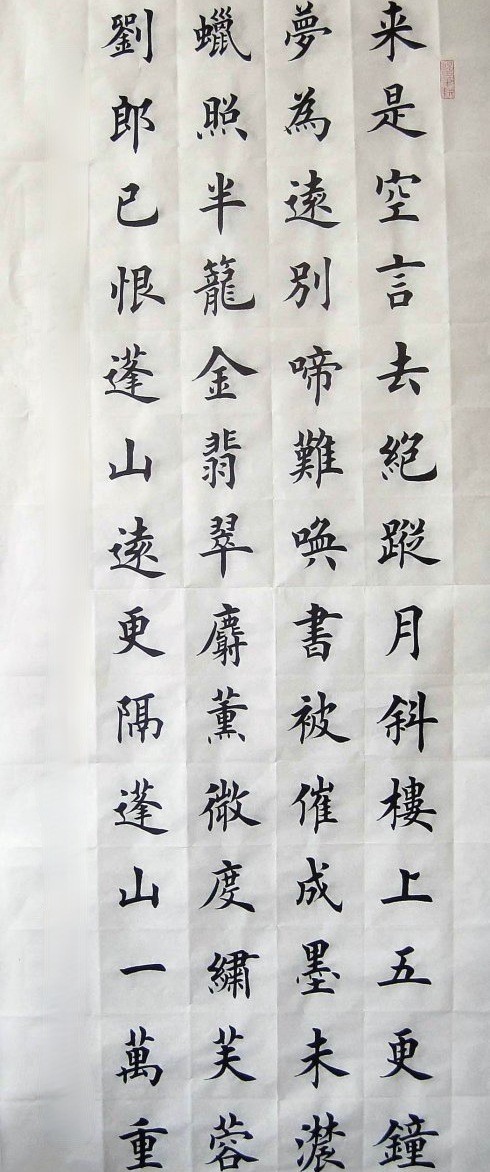 来是空言去絕蹤月斜樓上五更鐘
夢為遠別啼難喚書被催成墨未濃
蠟照半籠金翡翠麝薰微度繡芙蓉
劉郎已恨蓬山遠更隔蓬山一萬重